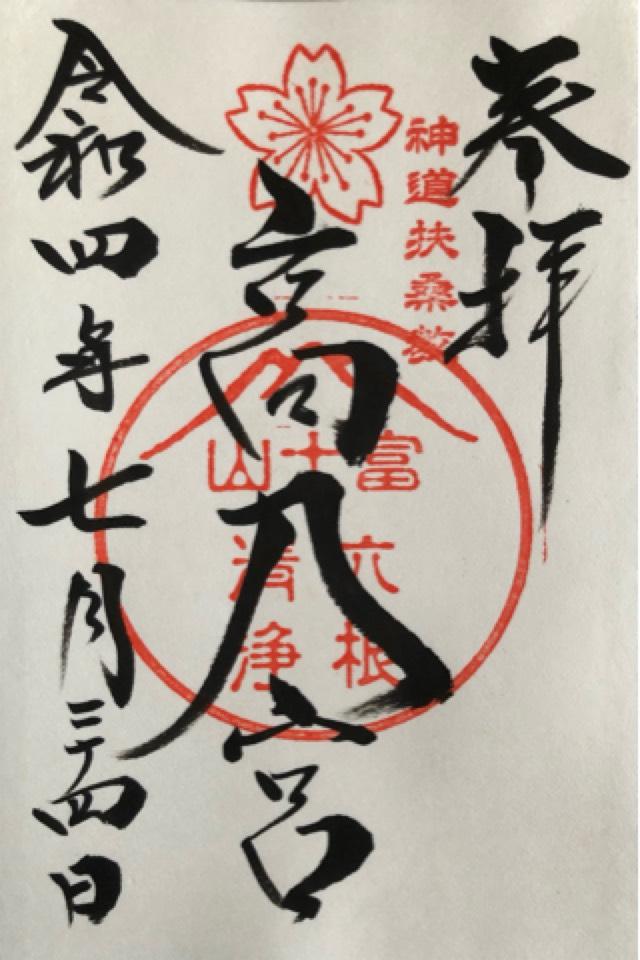 奉拝
神道扶桑教
高八宮
富士山
六根
清浄
令和四年七月二十四日